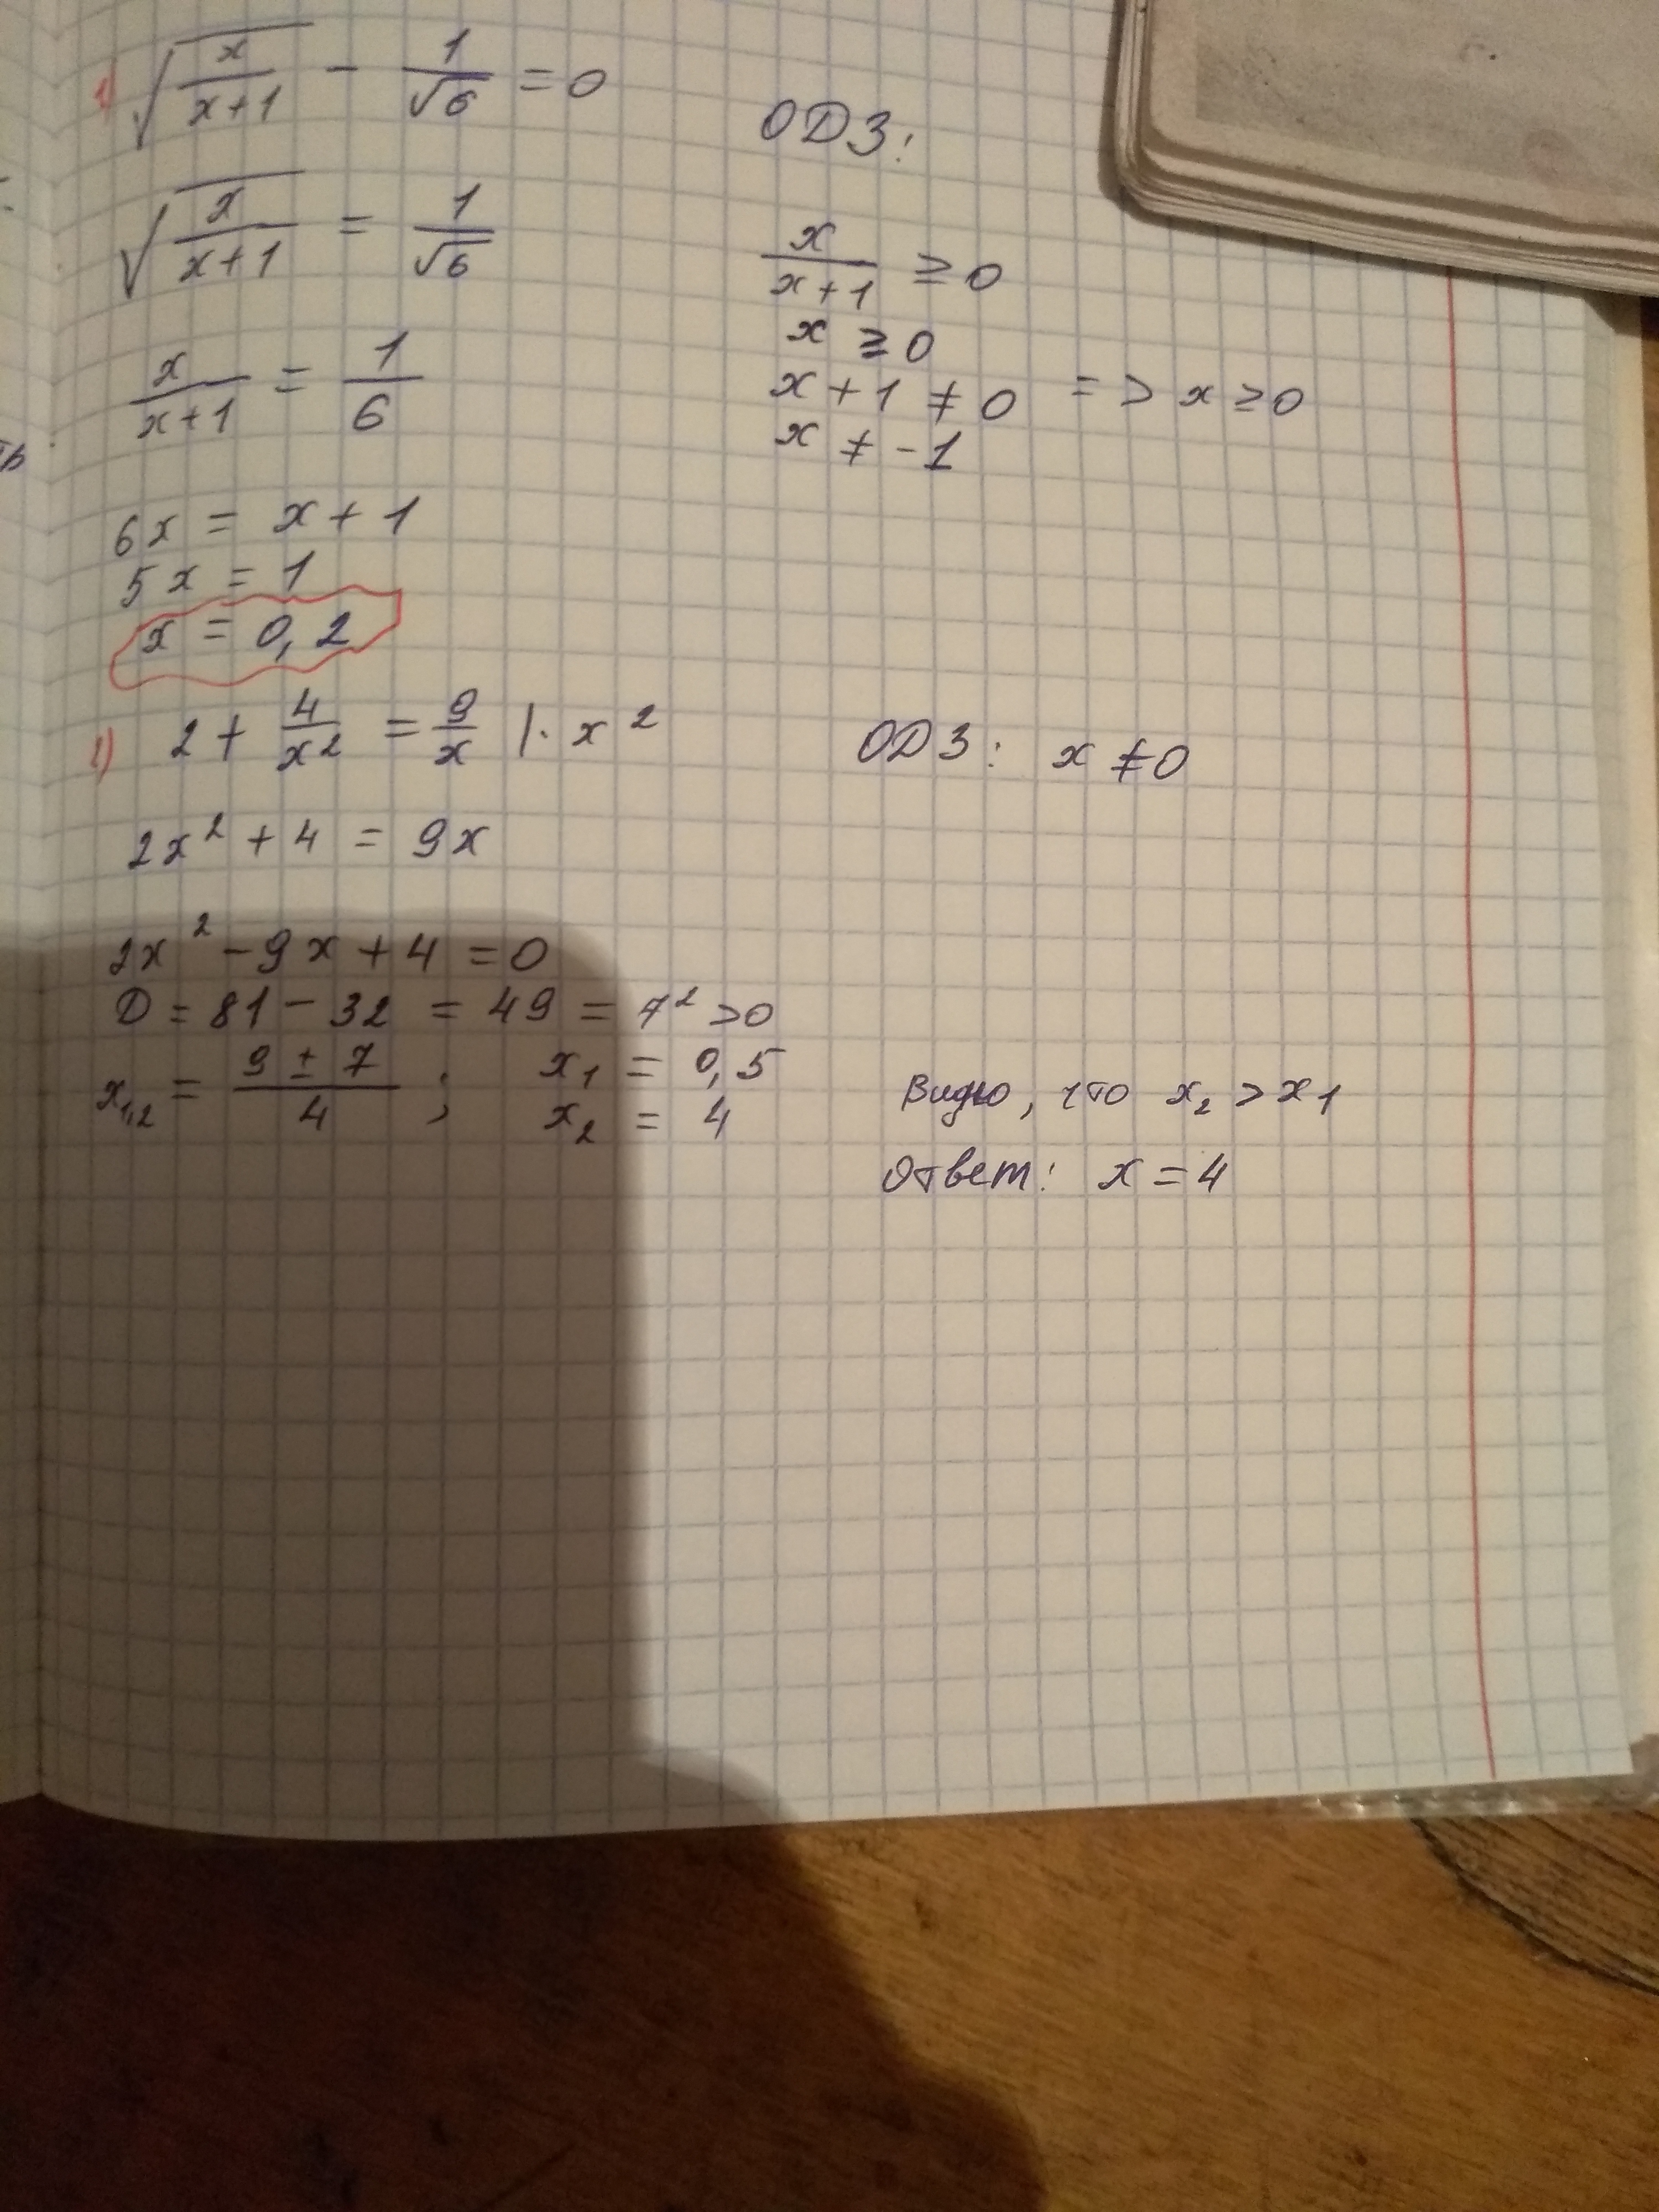 1) √(x/(x+1)) - 1/√6 = 0
√(x/(x+1)) = 1/√6
x/(x+1) = 1/6
6x = x + 1
5x = 1
x = 0,2
ОДЗ:
x/(x+1) ≥ 0
x ≥ 0
x + 1 ≠ 0 => x ≥ 0
x ≠ -1
2) 2 + 4/x² = 9/x |· x²
ОДЗ: x ≠ 0
2x² + 4 = 9x
2x² - 9x + 4 = 0
D = 81 - 32 = 49 = 7² > 0
x₁,₂ = (9 ± 7)/4 ; x₁ = 0,5
x₂ = 4
Видно, что x₂ > x₁
Ответ: x = 4